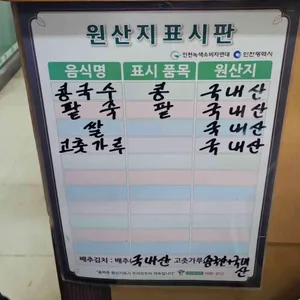 원산지표시판
인천녹색소비자연대 인천광역시
음식명 표시 품목 원산지
콩국수 콩 국내산
팥죽 팥 국내산
쌀 국내산
고춧가루 국내산
배추김치 : 배추 국내산 고춧가루 국내산